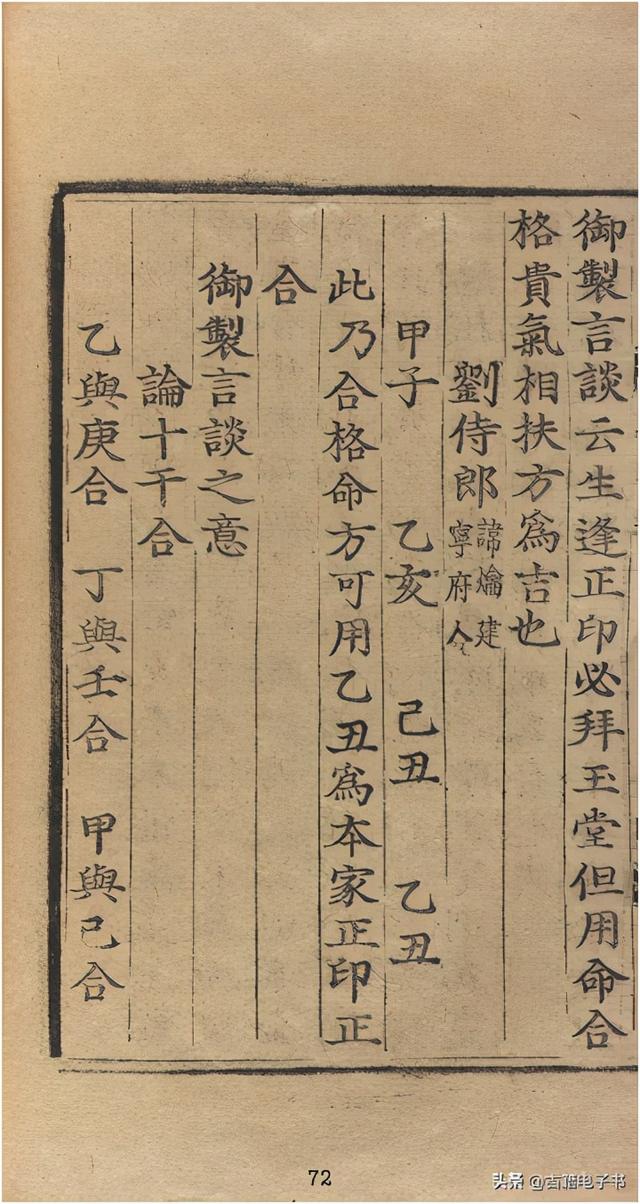 御製言談云生逢正印必拜玉堂但用命合
格貴氣相扶方爲吉也
劉侍郎
諱爚建
寧府人
甲子 乙亥 己丑 乙丑
此乃合格命方可用乙丑爲本家正印正
合
御製言談之意
論十干合
乙與庚合 丁與壬合 甲與己合
72
头条 @古籍电子书